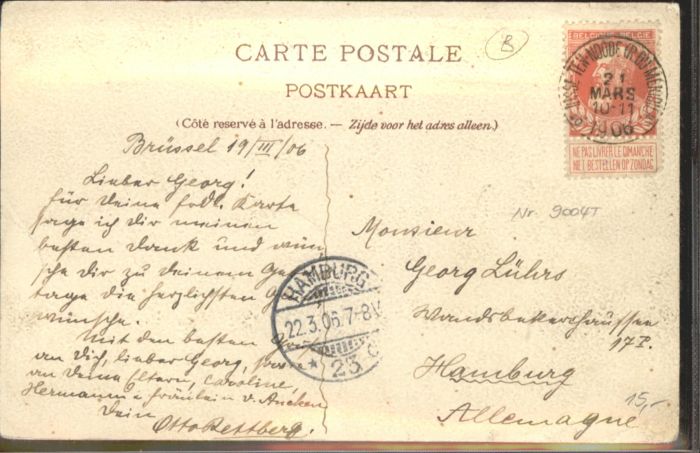 CARTE POSTALE
POSTKAART
(Côté reservé à l'adresse. — Zijde voor het adres alleen.)
B
BELGIQUE·BELGIË
21
MARS
10-11
1906
NE PAS LIVRER LE DIMANCHE
NIET BESTELLEN OP ZONDAG
Brüssel 19/III/06
Lieber Georg!
Für deine frdl. Karte
sage ich dir meinen
besten Dank und wün
sche dir zu deinem Ge
tage die herzlichsten
wünsche.
Mit den besten
an Dich, lieber Georg,
an deine Eltern, Caroline,
Hermann u Fräulein v. Aneken
Dein
Otto Rettberg.
HAMBURG
22.3.06.7-8V
* 23 c
Nr. 9004T
Monsieur
Georg Lührs
Wandsbekerchaussee
17 I.
Hamburg
Allemagne
15,-